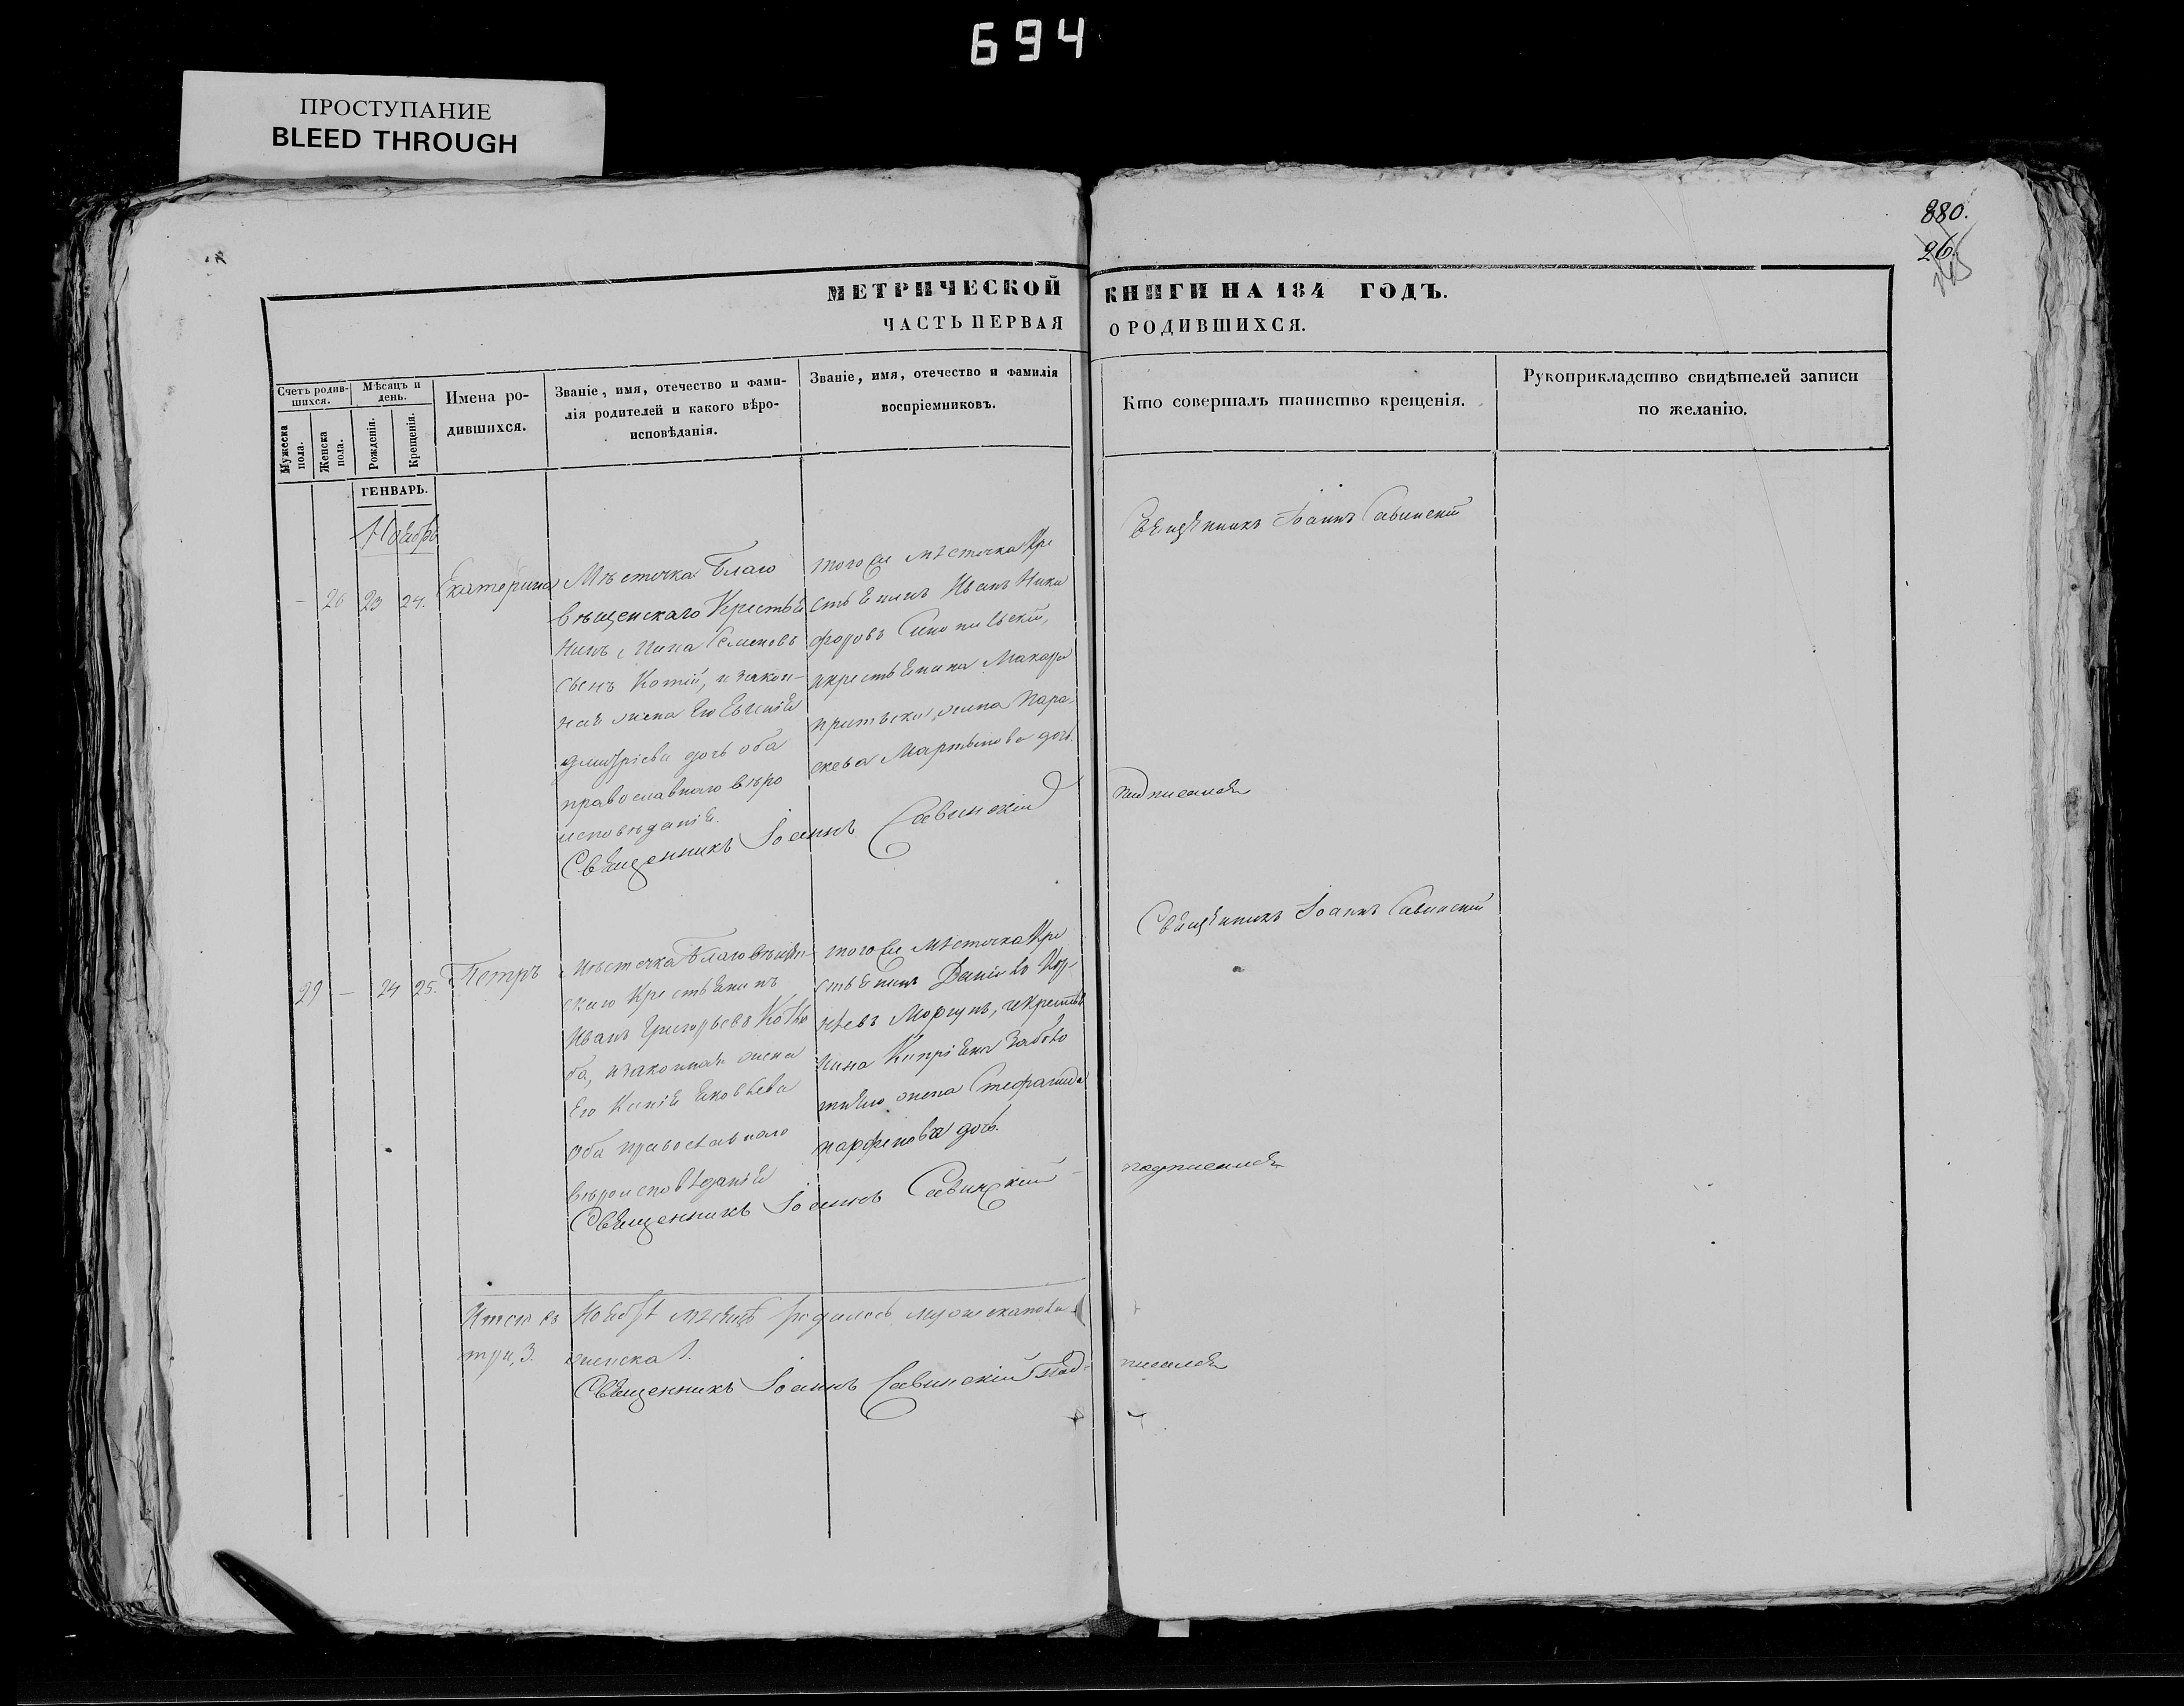 694
ПРОСТУПАНИЕ
BLEED THROUGH
880.
26
МЕТРИЧЕСКОЙ КНИГИ НА 184 ГОДЪ.
ЧАСТЬ ПЕРВАЯ О РОДИВШИХСЯ.
Счетъ родив-
шихся.
Мѣсяцъ и
день.
Мужеска
пола.
Женска
пола.
Рожденія.
Крещенія.
Имена ро-
дившихся.
Званіе, имя, отечество и фами-
лія родителей и какого вѣро-
исповѣданія.
Званіе, имя, отечество и фамилія
воспріемниковъ.
Кто совершалъ таинство крещенія.
Рукоприкладство свидѣтелей записи
по желанію.
ГЕНВАРЬ.
Ноябрь
– 26 23 24. Екатерина
Мѣстечка Благо
вѣщенскаго Крестья
нинъ Семеновъ
сынъ Котій, и закон-
ная жена его Евгенія
Дмитріева дочь оба
православнаго вѣро
исповѣданія.
того же мѣстечка Кре
стьянинъ Иванъ Ники
форовъ
и крестьянина Макара
жена Пара-
скева Мартынова дочь.
Священникъ Іоаннъ Савинскій
Священникъ Іоаннъ Савинскій подписался
29 – 24 25. Петръ
Мѣстечка Благовѣщен-
скаго Крестьянинъ
Иванъ Григорьевъ
ба, и законная жена
его Ксенія Яковлева
оба православнаго
вѣроисповѣданія
того же мѣстечка Кре
стьянинъ Данило Кор-
нѣевъ Моргунъ, и крестья
нина Кипріяна
жена Стефанида
Парфенова дочь.
Священникъ Іоаннъ Савинскій
Священникъ Іоаннъ Савинскій подписался
Итого въ Ноябрѣ мѣсяцѣ родилось мужеска пола
три, 3. женска 1.
Священникъ Іоаннъ Савинскій подписался